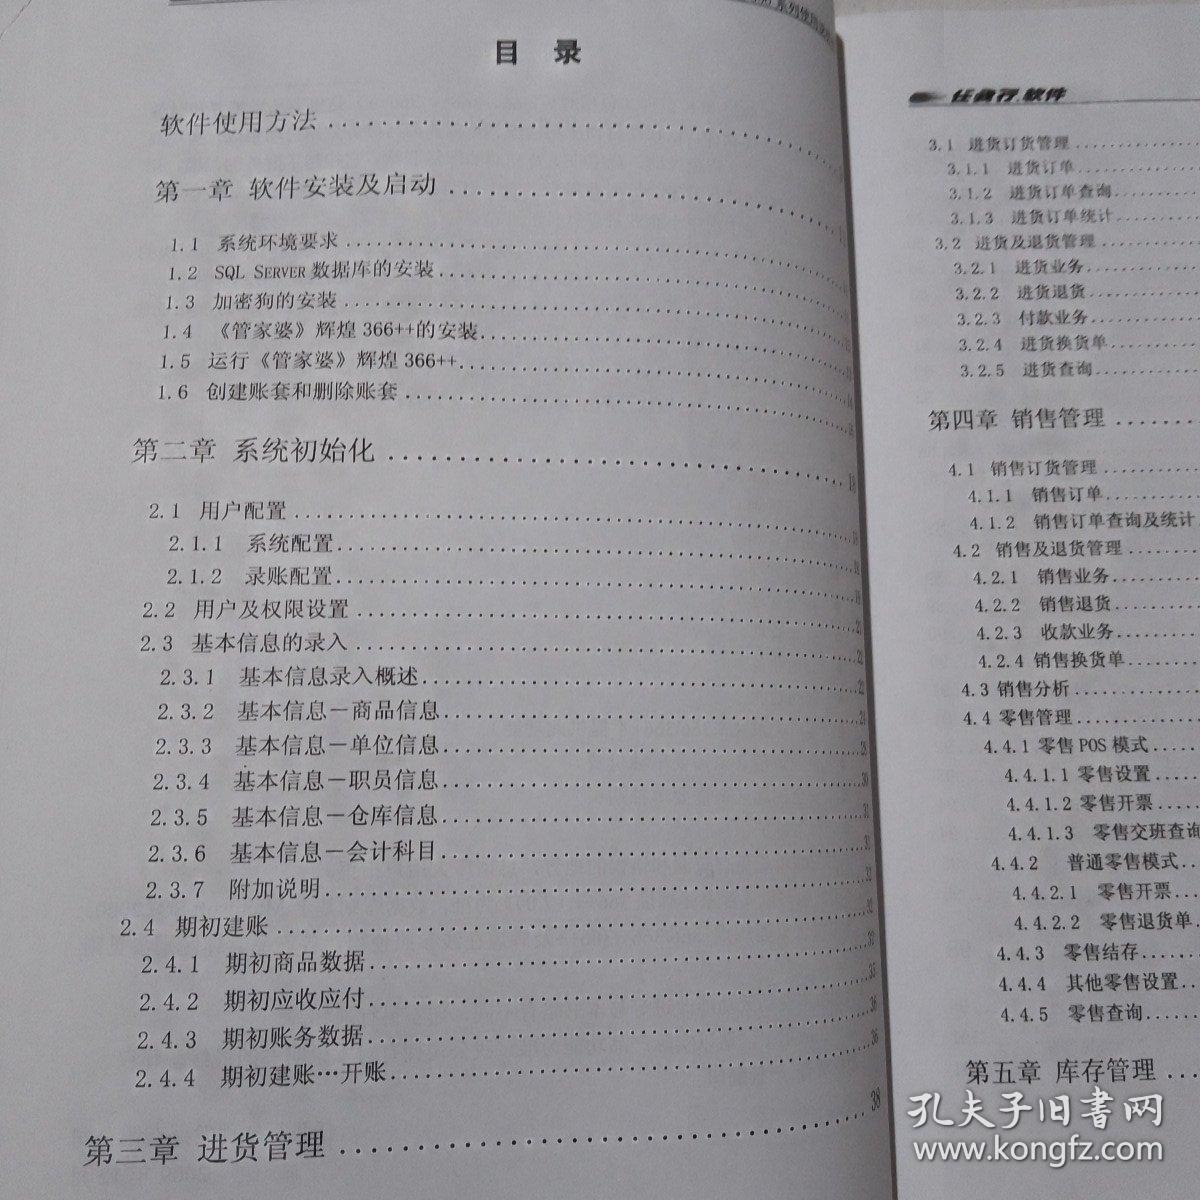 目 录
软件使用方法
第一章 软件安装及启动
1.1 系统环境要求
1.2 SQL SERVER 数据库的安装
1.3 加密狗的安装
1.4 《管家婆》辉煌 366++的安装
1.5 运行《管家婆》辉煌 366++
1.6 创建账套和删除账套
第二章 系统初始化
2.1 用户配置
2.1.1 系统配置
2.1.2 录账配置
2.2 用户及权限设置
2.3 基本信息的录入
2.3.1 基本信息录入概述
2.3.2 基本信息－商品信息
2.3.3 基本信息－单位信息
2.3.4 基本信息－职员信息
2.3.5 基本信息－仓库信息
2.3.6 基本信息－会计科目
2.3.7 附加说明
2.4 期初建账
2.4.1 期初商品数据
2.4.2 期初应收应付
2.4.3 期初账务数据 36
2.4.4 期初建账…开账
第三章 进货管理 38
任我行 软件
3.1 进货订货管理
3.1.1 进货订单
3.1.2 进货订单查询
3.1.3 进货订单统计
3.2 进货及退货管理
3.2.1 进货业务
3.2.2 进货退货
3.2.3 付款业务
3.2.4 进货换货单
3.2.5 进货查询
第四章 销售管理
4.1 销售订货管理
4.1.1 销售订单
4.1.2 销售订单查询及统计
4.2 销售及退货管理
4.2.1 销售业务
4.2.2 销售退货
4.2.3 收款业务
4.2.4 销售换货单
4.3 销售分析
4.4 零售管理
4.4.1 零售 POS 模式
4.4.1.1 零售设置
4.4.1.2 零售开票
4.4.1.3 零售交班查询
4.4.2 普通零售模式
4.4.2.1 零售开票
4.4.2.2 零售退货单
4.4.3 零售结存
4.4.4 其他零售设置
4.4.5 零售查询
第五章 库存管理
孔夫子旧书网
www.kongfz.com